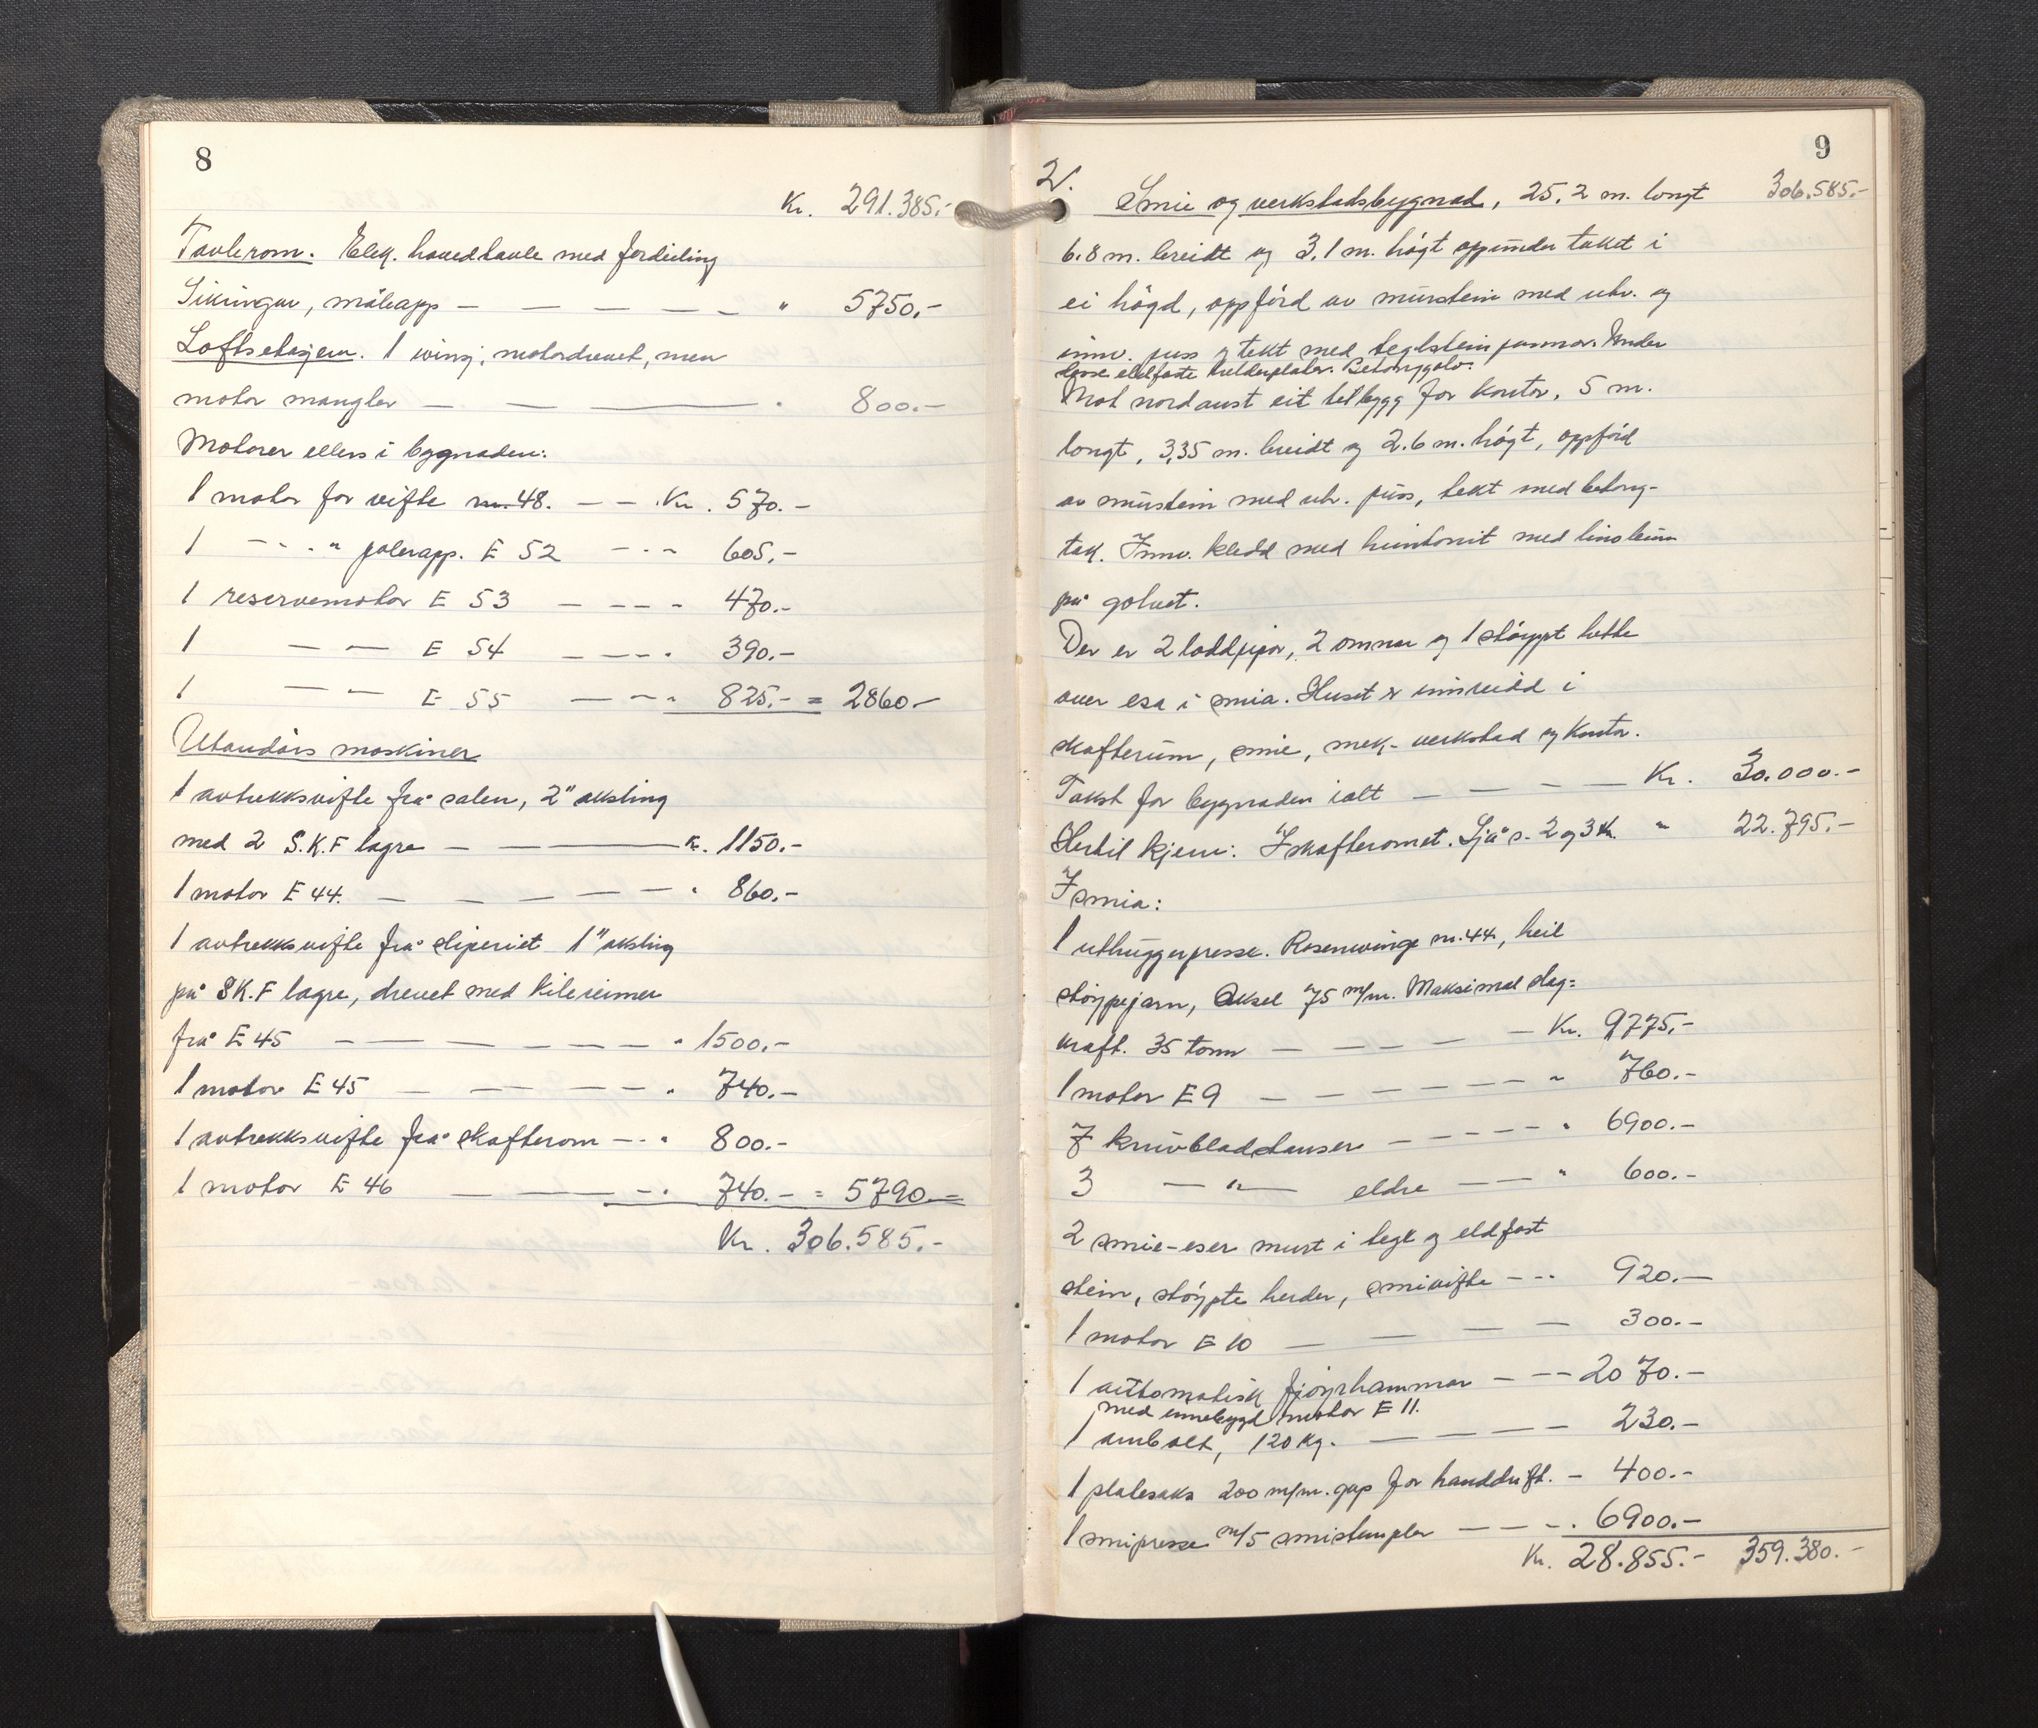 8
Kr. 291.385.-
Tavlerom. Elek. hovedtavle med fordeiling
Sikringar, måleapp — — — — — " 5750.-
Loftsetasjen. 1 vinsj, motordrevet, men
motor mangler — — — " 800.-
Motorer ellers i bygnaden:
1 motor for vifte nr. 48. — — Kr. 570.-
1 — " — " polerapp. E 52 — " — 605.-
1 reservemotor E 53 — — — " 470.-
1 — " — E 54 — — — " 390.-
1 — " — E 55 — — — " 825.- = 2860.-
Utandørs maskiner
1 avtrekksvifte frå salen, 2" aksling
med 2 S.K.F lagre — — K. 1150.-
1 motor E 44. — — — — — " 860.-
1 avtrekksvifte frå sliperiet 1" aksling
på SK.F lagre, drevet med kilereimer
frå E 45 — — — — — — " 1500.-
1 motor E 45 — — — — — " 740.-
1 avtrekksvifte frå skafterom — " 800.-
1 motor E 46 — — — " 740.- = 5790.-
Kr. 306.585.-
9
306.585.-
2. Smie og verkstadsbygnad, 25,2 m. longt
6.8 m. breidt og 3,1 m. høgt oppunder taket i
ei høgd, oppførd av murstein med utv. og
innv. puss og tekt med teglsteinpannor. Under
desse eldfaste helderplater. Betonggolv.
Mot nordaust eit tilbygg for kontor, 5 m.
longt, 3,35 m. breidt og 2.6 m. høgt, oppførd
av murstein med utv. puss, tekt med betong-
tak. Innv. kledd med huntonit med linoleum
på golvet.
Der er 2 loddpipor, 2 omnar og 1 støypt hette
over esa i smia. Huset er innreidd i
skafterum, smie, mek. verkstad og kontor.
Takst for bygnaden ialt — — — — Kr. 30.000.-
Hertil kjem: I skafteromet. Sjå s. 2 og 3 K. " 22.795.-
I smia:
1 uthuggerpresse. Rosenvinge nr. 44, heil
støypejarn, Aksel 75 m/m. Maksimal slag=
kraft. 35 tonn — — — — — Kr. 9775.-
1 motor E 9 — — — — — — " 760.-
7 knivbladstanser — — — — — " 6900.-
3 — " — eldre — — " 600.-
2 smie-eser murt i tegl og eldfast
stein, støypte herder, smivifte — — " 920.-
1 motor E 10 — — — — 300.-
1 automatisk fjøyrhammar — — — 2070.-
med innebygd motor E 11.
1 ambolt, 120 kg. — — — — — 230.-
1 platesaks 200 m/m. gap for handdrift. — 400.-
1 smipresse m/5 smistempler — — — . 6900.-
Kr. 28.855.- 359.380.-